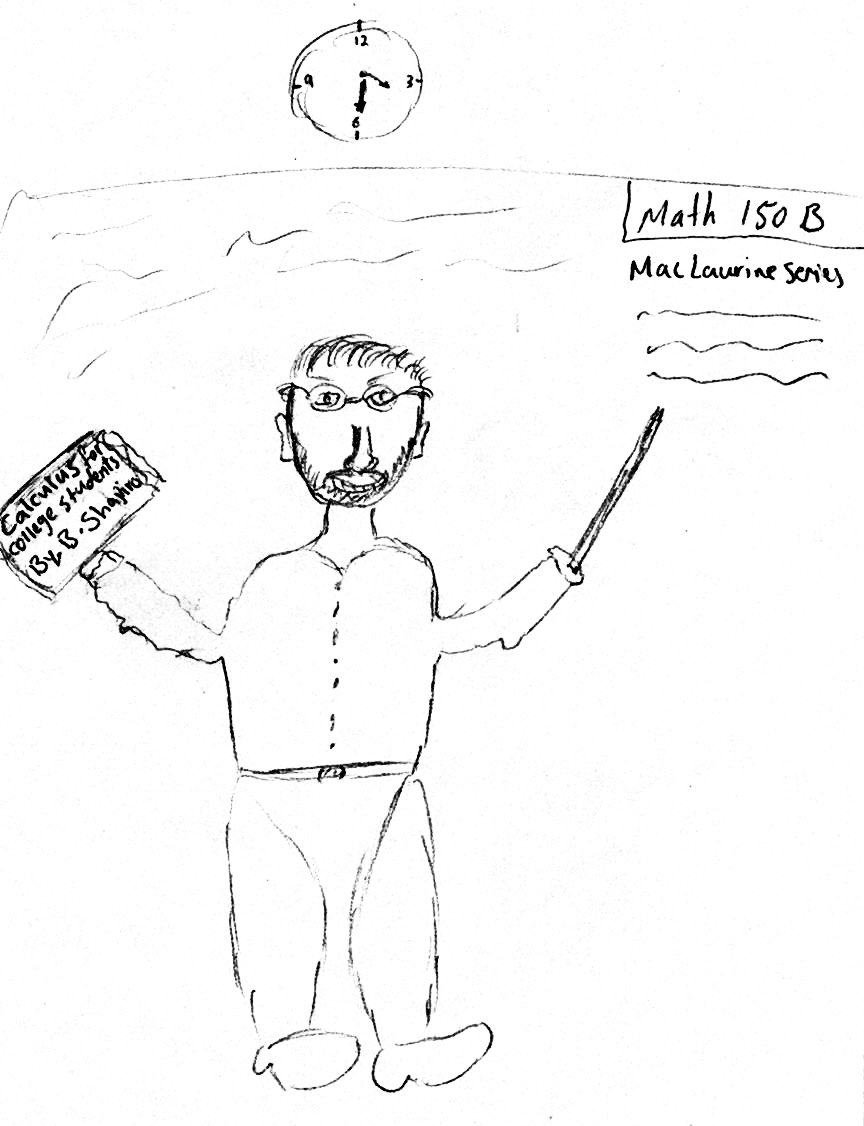 12
9
3
6
Math 150 B
MacLaurine Series
Calculus for
college students
By. B. Shapiro